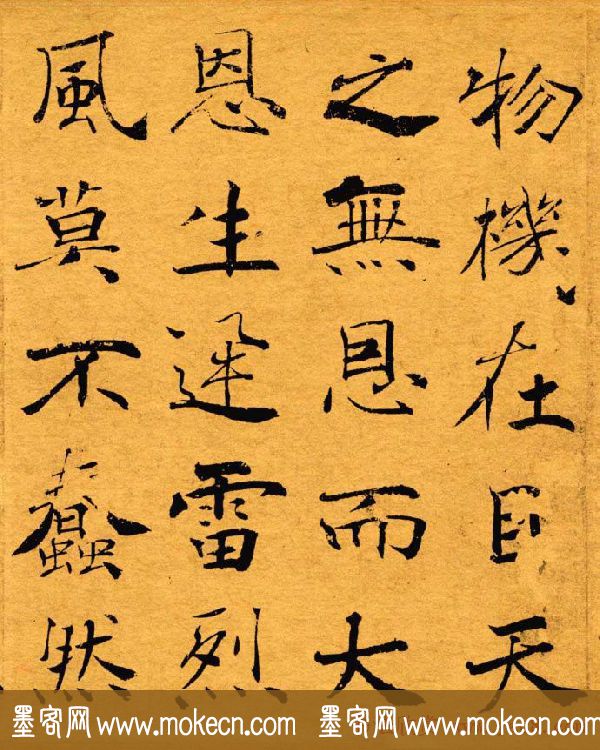 物機在目天
之無恩而大
恩生迅雷烈
風莫不蠢然
墨客网 www.mokecn.com 墨客网 www.mokecn.com